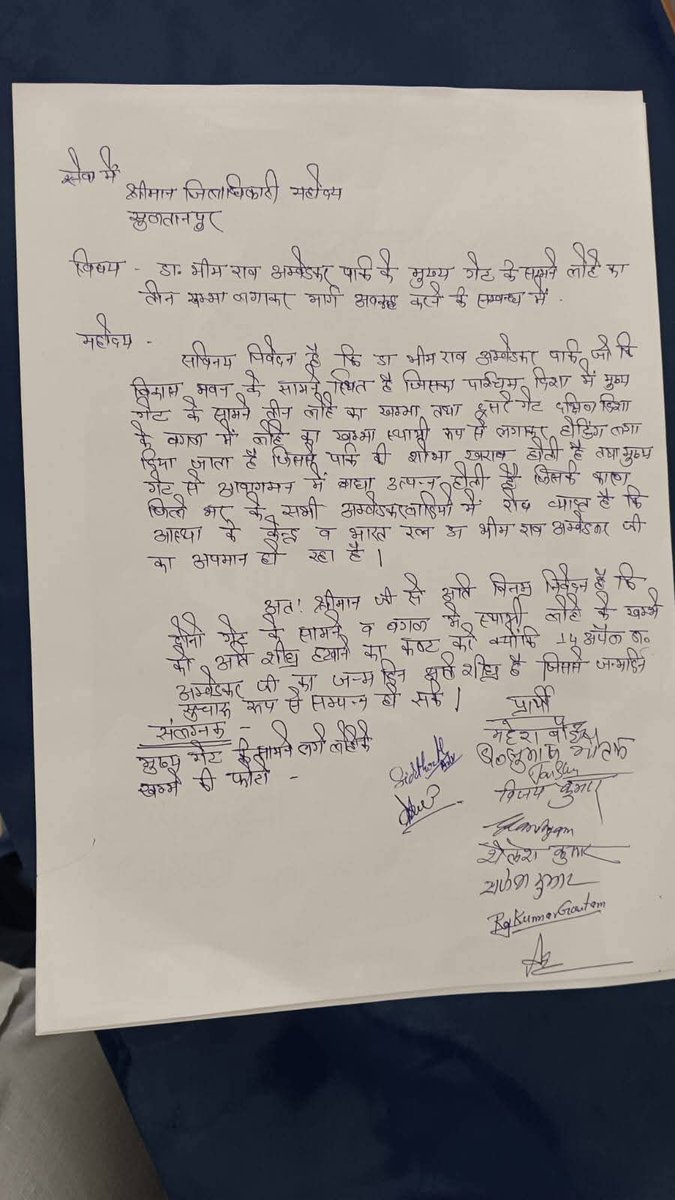 सेवा में
श्रीमान जिलाधिकारी महोदय
सुलतानपुर
विषय - डा. भीम राव अम्बेडकर पार्क के मुख्य गेट के सामने लोहे का
तीन खम्भा लगाकर मार्ग अवरूद्ध करने के सम्बन्ध में .
महोदय -
सविनय निवेदन है कि डा भीम राव अम्बेडकर पार्क जो कि
विकास भवन के सामने स्थित है जिसका पश्चिम दिशा में मुख्य
गेट के सामने तीन लोहे का खम्भा तथा दूसरे गेट दक्षिण दिशा
के बगल में लोहे का खम्भा स्थायी रूप से लगाकर होर्डिंग लगा
दिया जाता है जिससे पार्क की शोभा खराब होती है तथा मुख्य
गेट से आवागमन में बाधा उत्पन्न होती है जिसके कारण
जिले भर के सभी अम्बेडकरवादियों में रोष व्याप्त है कि
आस्था के केन्द्र व भारत रत्न डा भीम राव अम्बेडकर जी
का अपमान हो रहा है।
अतः श्रीमान जी से अति विनम्र निवेदन है कि
दोनों गेट के सामने व बगल में स्थायी लोहे के खम्भे
को अति शीघ्र हटवाने का कष्ट करें क्योंकि 14 अप्रैल डा०
अम्बेडकर जी का जन्म दिन अति शीघ्र है जिससे जन्मदिन
सुचारू रूप से सम्पन्न हो सके।
प्रार्थी
संलग्नक -
मुख्य गेट के सामने लगे लोहे के
खम्भे की फोटो -
महेश
Siddharth
विजय कुमार
शैलेश कुमार
राकेश कुमार
RajKumar Gautam